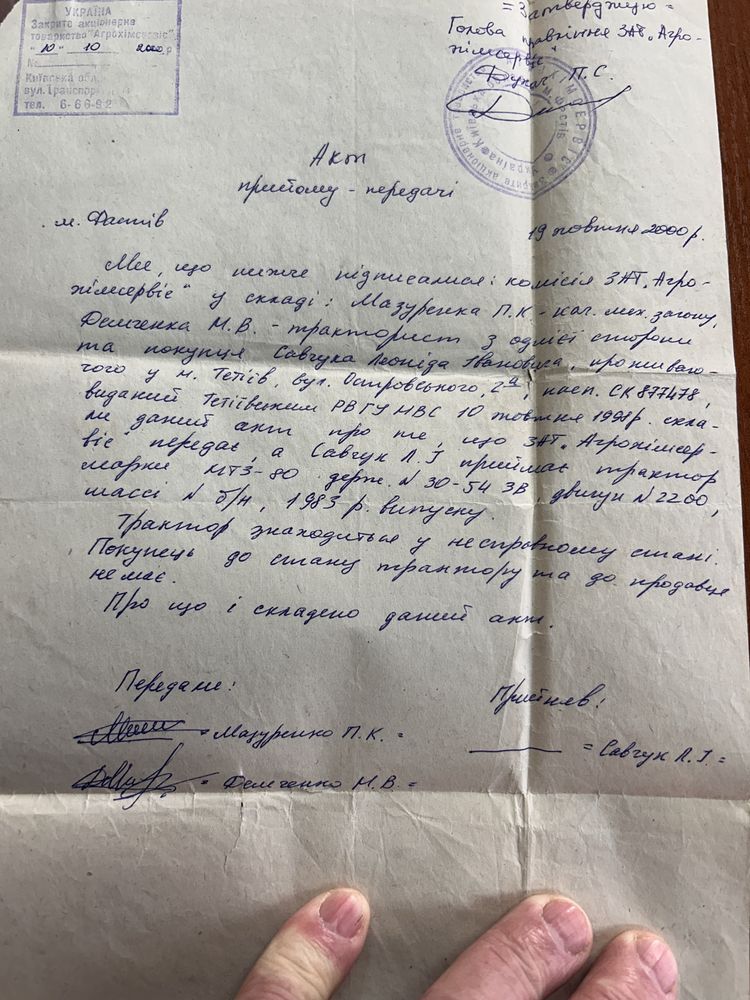 УКРАЇНА
Закрите акціонерне
товариство "Агрохімсервіс"
"10" 10 2000 р
№
Київська обл.
вул. Транспор
тел. 6-66-92
= Затверджую =
Голова правління ЗАТ „Агро-
хімсервіс"
Дукач П.С.
Акт
прийому - передачі
м. Фастів
19 жовтня 2000 р.
Ми, що нижче підписалися: комісія ЗАТ „Агро-
хімсервіс" у складі: Мазуренка П.К - нач. мех. загону,
Демченка М.В. - тракторист з однієї сторони
та покупця Савчука Леоніда Івановича, проживаю-
чого у м. Тетіїв, вул. Островського, 2а, пасп. СК 877478,
виданий Тетіївським РВГУ МВС 10 жовтня 1998р. скла-
ли даний акт про те, що ЗАТ „Агрохімсер-
віс" передає, а Савчук Л.І приймає трактор
марки МТЗ-80 держ. N 30-54 ЗВ, двигун N 2200,
шассі N б/н, 1983 р. випуску.
Трактор знаходиться у несправному стані.
Покупець до стану трактору та до продавця
немає.
Про що і складено даний акт.
Передали:
Прийняв:
= Мазуренко П.К. =
= Савчук Л.І. =
= Демченко М.В. =